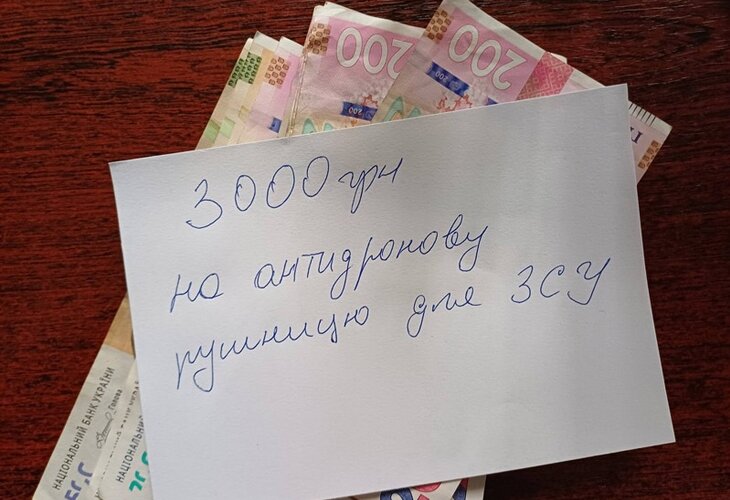 200
200
200
3000 грн
на антидронову
рушницю для ЗСУ
НАЦІОНАЛЬНИЙ БАНК УКРАЇНИ
Голова
НАЦІОНАЛЬНИЙ БАНК УКРАЇ